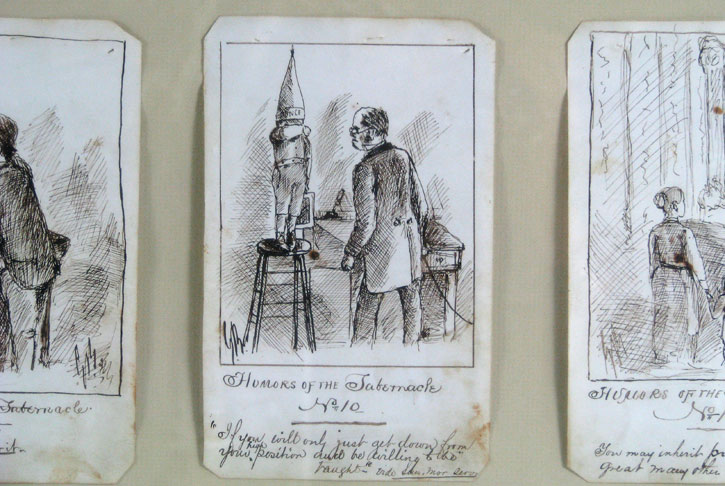 Tabernacle.
HUMORS OF THE Tabernacle
No 10
"If you will only just get down from
your high position and be willing to be
taught—" Vide Sun. Mor. Serm
HUMORS OF THE
No
You may inherit
great many other